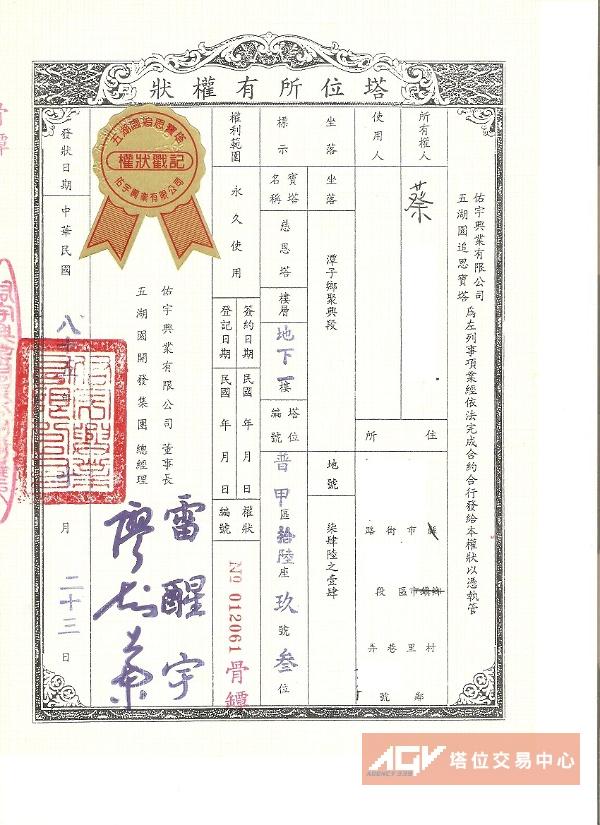 塔位所有權狀
佑宇興業有限公司
五湖園追思寶塔
為左列事項業經依法完成合約合行發給本權狀以憑執管
所有權人
蔡
使用人
住所
縣市 鄉鎮市區 村里 鄰
路街 段 巷弄 號
坐落
坐落 潭子鄉聚興段 地號 柒肆陸之壹肆
標示
寶塔名稱 慈恩塔 樓層 地下一樓 塔位編號 普甲區拾陸座玖號叁位
權利範圍
永久使用
簽約日期 民國 年 月 日
登記日期 民國 年 月 日
權狀編號 No 012061 骨罈
五湖園追思寶塔
權狀戳記
佑宇興業有限公司
佑宇興業有限公司 董事長 雷醒宇
五湖園開發集團 總經理
發狀日期 中華民國 八十五年 月二十三日
骨罈
AGV
AGENCY 339
塔位交易中心